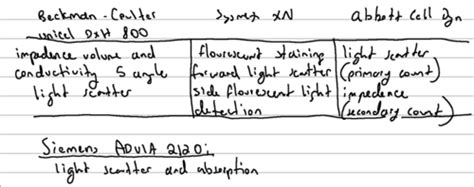 Beckman-Coulter Sysmex XN Abbott Cell Dyn
unicel DxH 800
impedance volume and flourescent staining light scatter
conductivity 5 angle forward light scatter (primary count)
light scatter side flourescent light impedance
detection (secondary count)
Siemens ADVIA 2120:
light scatter and absorption